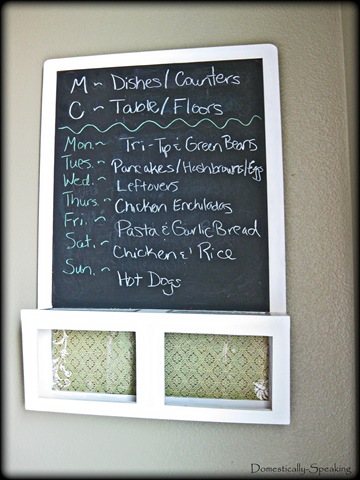 M ~ Dishes/Counters
C ~ Table/Floors
Mon. ~ Tri-Tip & Green Beans
Tues. ~ Pancakes/Hashbrowns/Eggs
Wed. ~ Leftovers
Thurs. ~ Chicken Enchiladas
Fri. ~ Pasta & Garlic Bread
Sat. ~ Chicken & Rice
Sun. ~ Hot Dogs
Domestically-Speaking